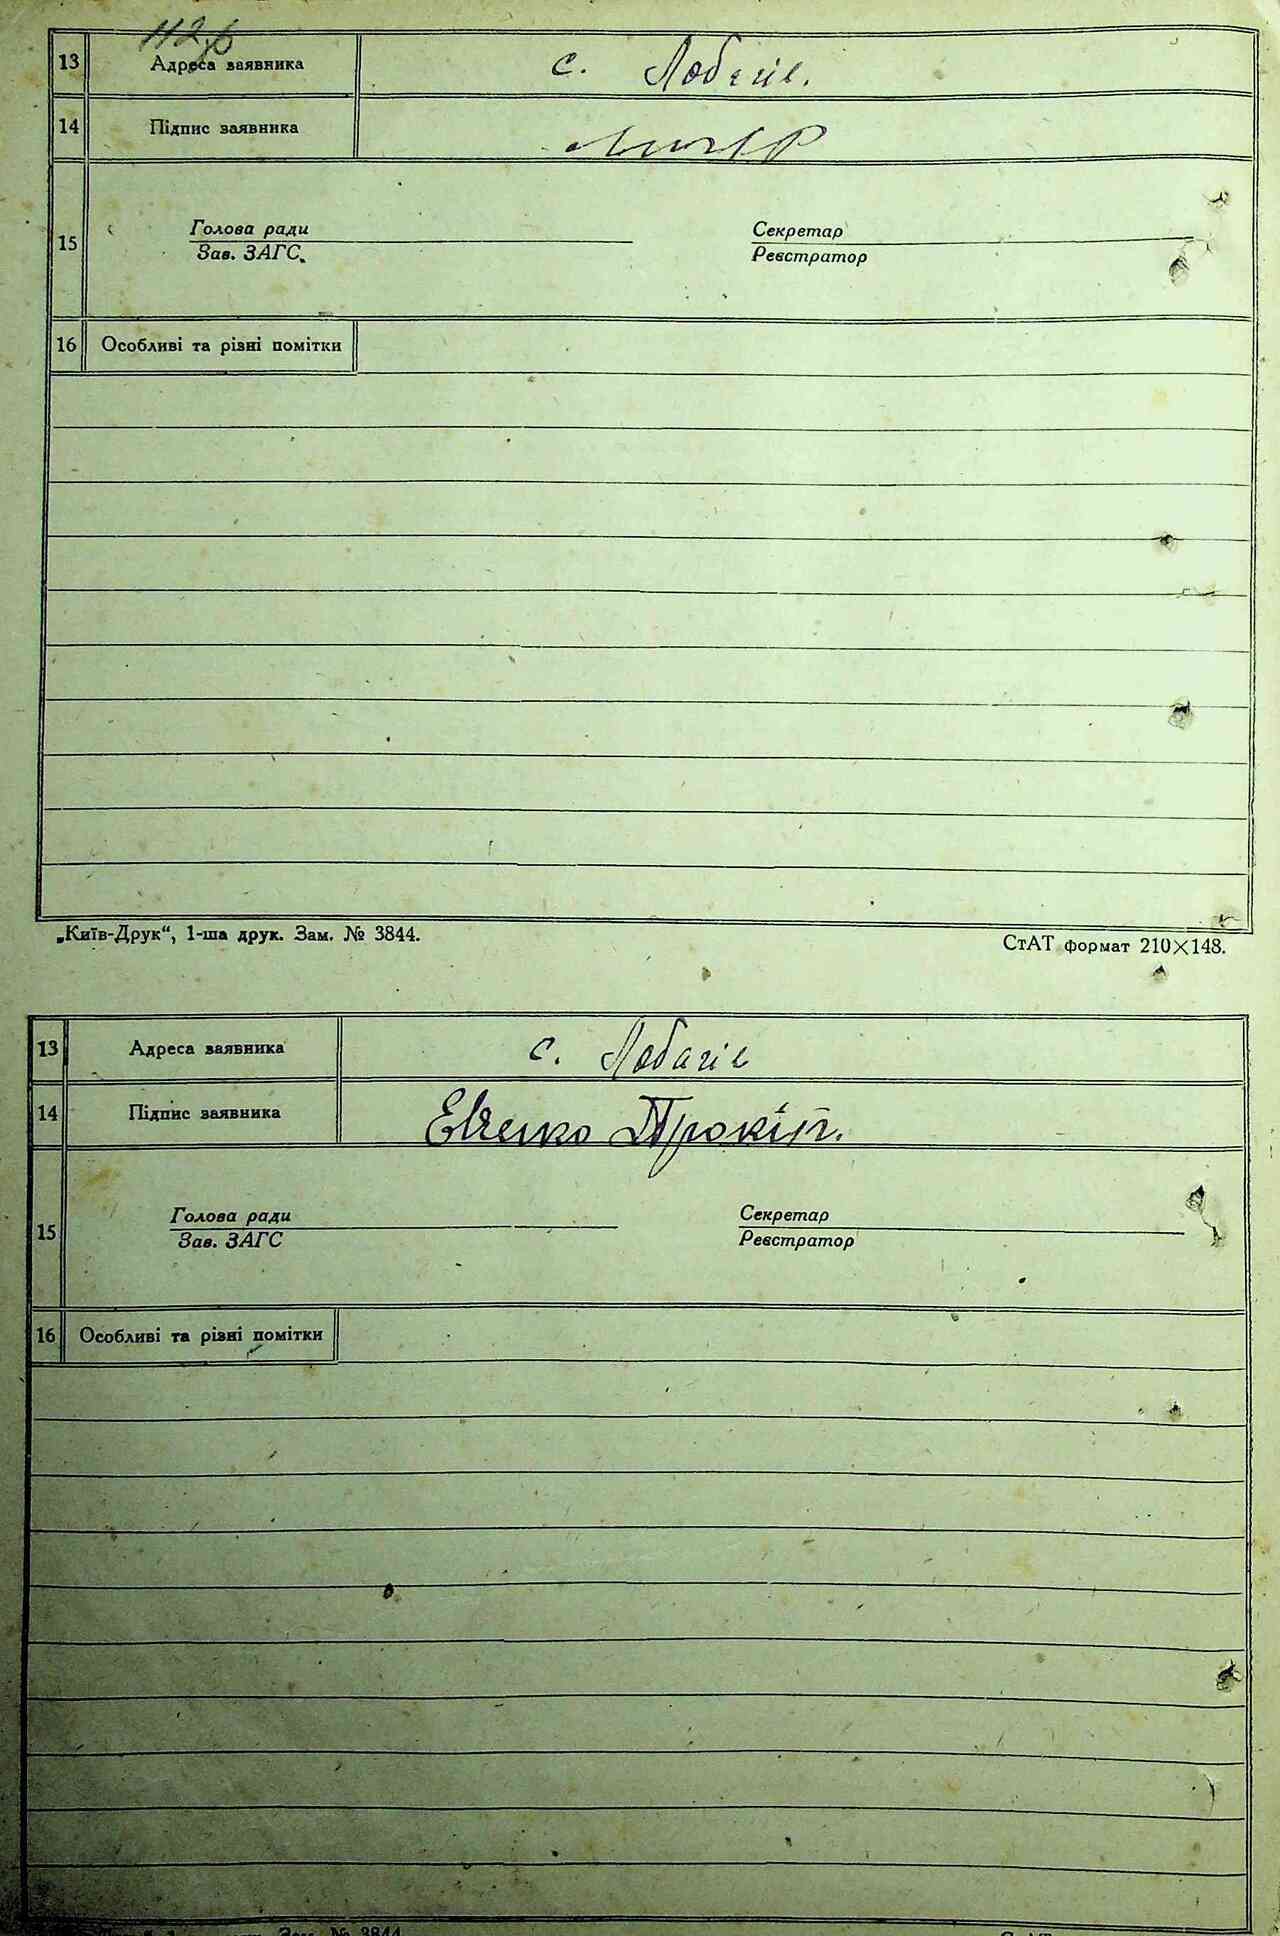 13 Адреса заявника с. Лобачів.
14 Підпис заявника
15 Голова ради Секретар
Зав. ЗАГС. Реєстратор
16 Особливі та різні помітки
„Київ-Друк“, 1-ша друк. Зам. № 3844. СтАТ формат 210×148.
13 Адреса заявника с. Лобачів
14 Підпис заявника Євченко Прокіп.
15 Голова ради Секретар
Зав. ЗАГС Реєстратор
16 Особливі та різні помітки
Зам. № 3844